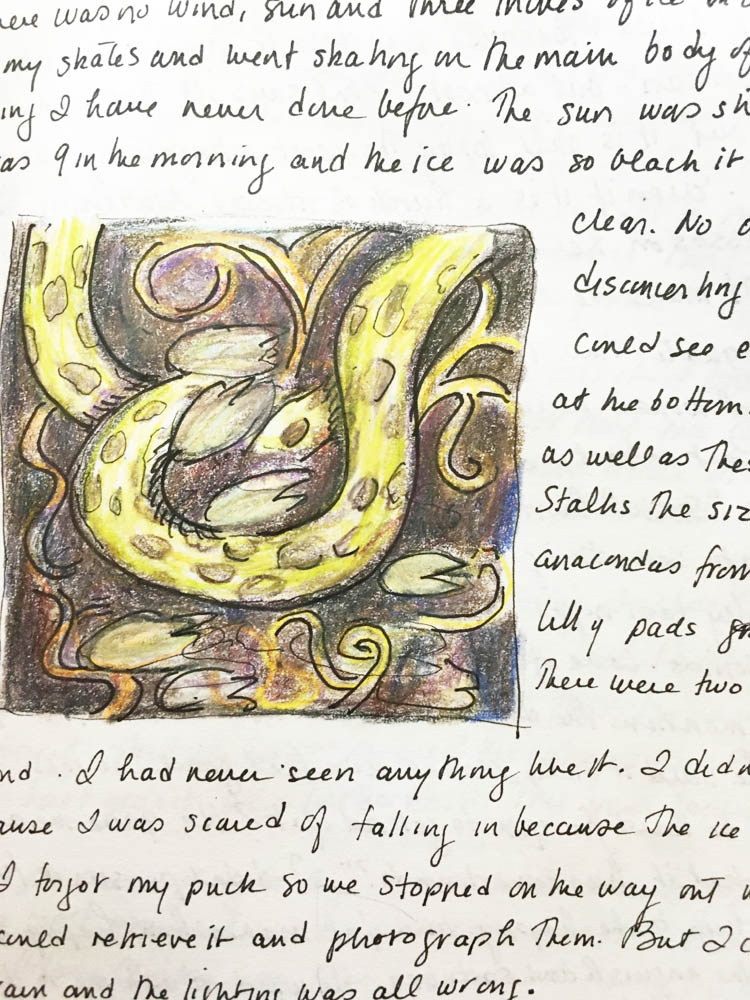 ere was no wind, sun and three inches of ice
my skates and went skating on the main body of
ing I have never done before. The sun was sh
as 9 in the morning and the ice was so black it
clear. No
disconcerting
could see e
at the bottom.
as well as these
Stalks the siz
anacondas from
lilly pads gr
There were two
nd. I had never seen anything like it. I didn
ause I was scared of falling in because the ice
I forgot my puck so we stopped on the way out
could retrieve it and photograph them. But I c
ain and the lighting was all wrong.